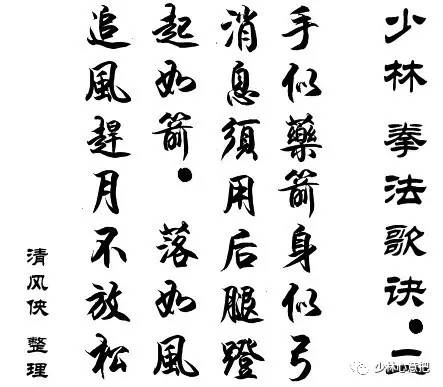 少林拳法歌诀·一
手似藥箭身似弓
消息須用后腿蹬
起如箭·落如風
追風趕月不放松
清风侠 整理
少林心意把